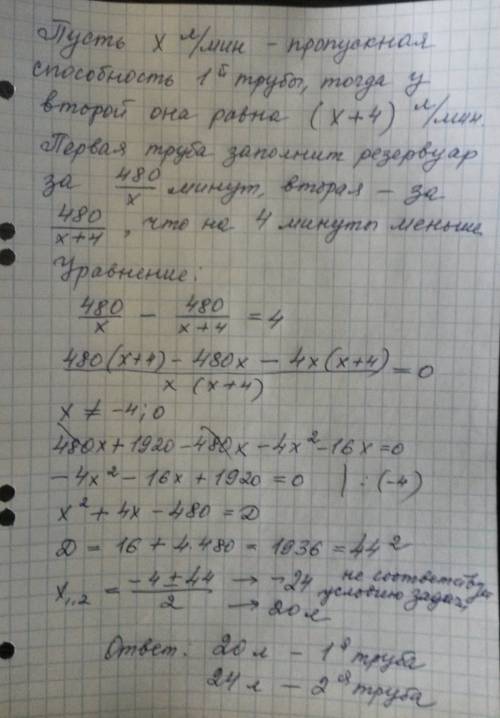 Пусть x л/мин - пропускная
способность 1й трубы, тогда у
второй она равна (x+4) л/мин.
Первая труба заполнит резервуар
за 480/x минут, вторая – за
480/(x+4), что на 4 минуты меньше
Уравнение:
480/x - 480/(x+4) = 4
(480(x+4) - 480x - 4x(x+4))/(x(x+4)) = 0
x ≠ -4; 0
480x + 1920 - 480x - 4x² - 16x = 0
-4x² - 16x + 1920 = 0 | : (-4)
x² + 4x - 480 = D
D = 16 + 4·480 = 1936 = 44²
x₁,₂ = (-4 ± 44)/2 → -24 не соответству
→ 20 л условию задач
Ответ: 20 л - 1я труба
24 л - 2я труба